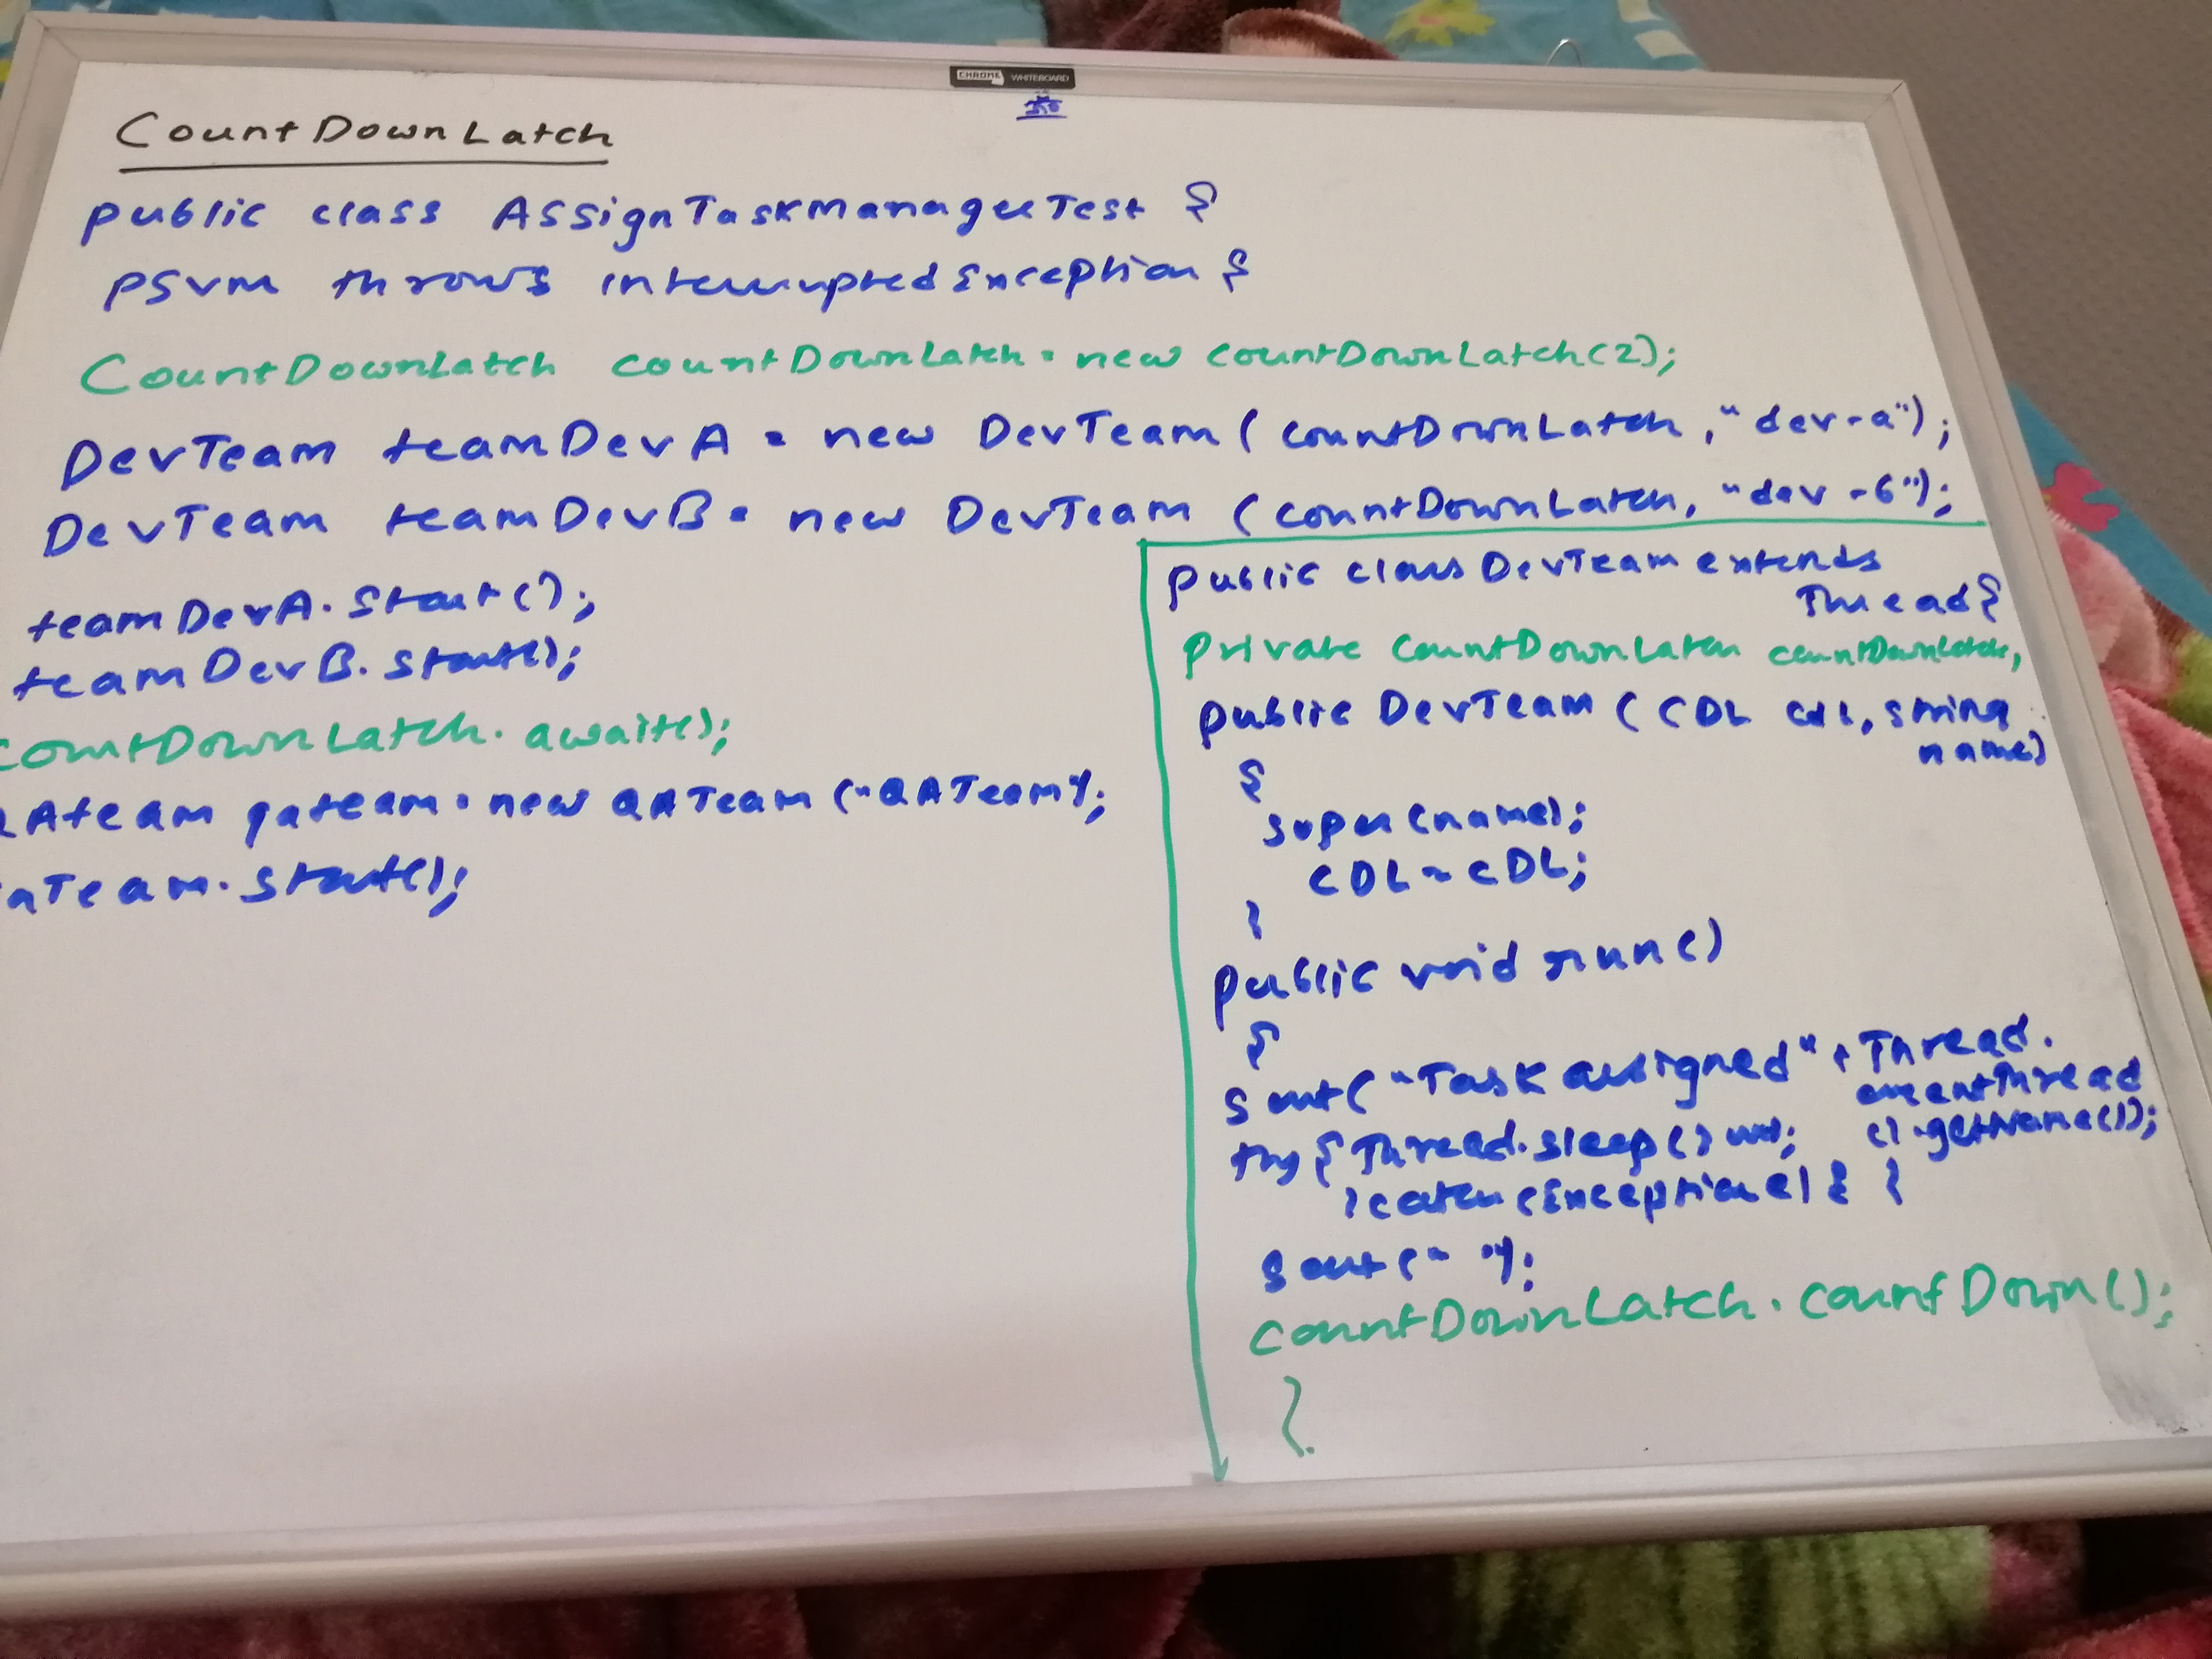 CHROME WHITEBOARD
CountDownLatch
public class AssignTaskManagerTest {
psvm throws interruptedException {
CountDownLatch countDownLatch = new CountDownLatch(2);
DevTeam teamDevA = new DevTeam (countDownLatch, "dev-a");
DevTeam teamDevB = new DevTeam (countDownLatch, "dev-b");
teamDevA.start();
teamDevB.start();
countDownLatch.await();
QAteam qateam = new QATeam ("QATeam");
qaTeam.start();
public class DevTeam extends
Thread {
private CountDownLatch countDownLatch;
public DevTeam (CDL cdl, string
name)
{
super(name);
CDL = CDL;
}
public void run()
{
sout("Task assigned" + Thread.
currentThread
().getName());
try { Thread.sleep()
} catch (Exception e) { }
sout(" ");
countDownLatch.countDown();
}